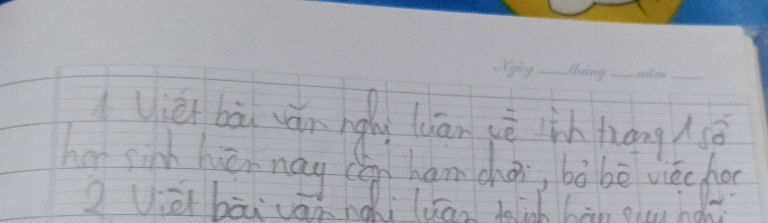 Ngày ......tháng ......năm ......
1 Viết bài văn nghị luận về tình trạng 1 số
học sinh hiện nay còn ham chơi, bỏ bê việc học
2 Viết bài văn nghị luận trình bày suy nghĩ